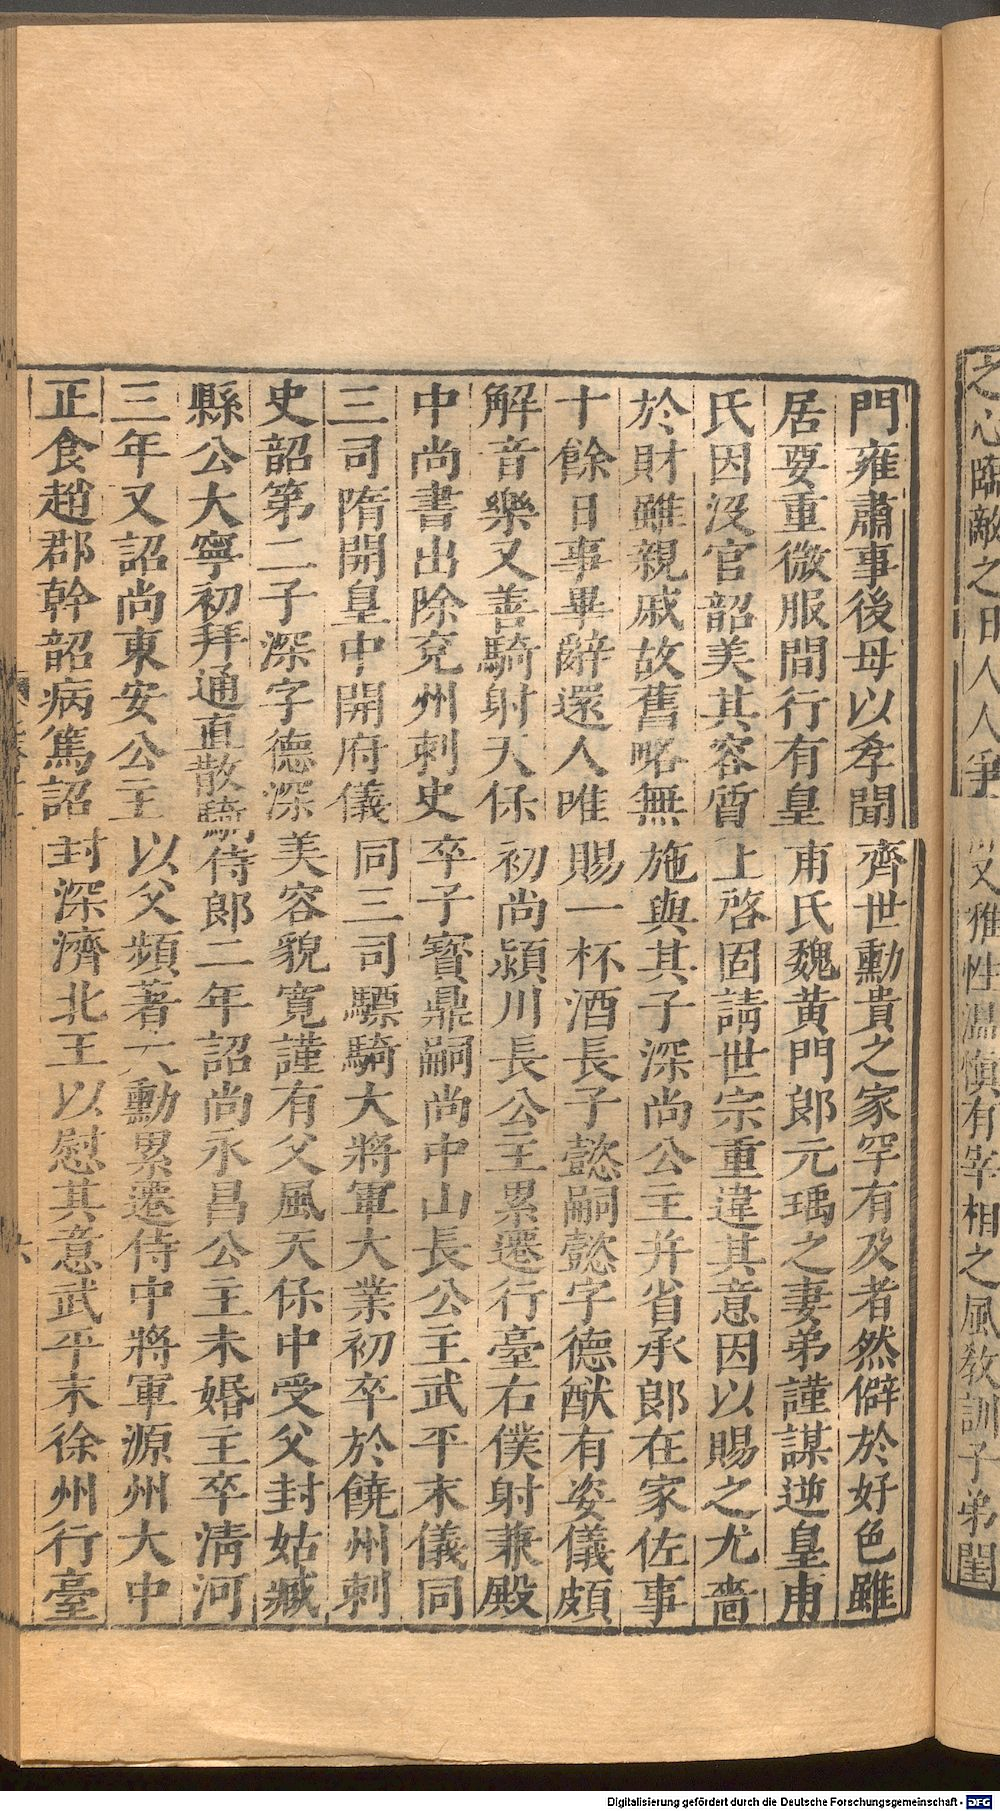 之心臨敵之日人人爭又雅性温慎有宰相之風教訓子弟閨
門雍肅事後母以孝聞齊世勳貴之家罕有及者然僻於好色雖
居要重微服間行有皇甫氏魏黃門郎元瑀之妻弟謹謀逆皇甫
氏因沒官韶美其容質上啓固請世宗重違其意因以賜之尤嗇
於財雖親戚故舊略無施與其子深尚公主并省承郎在家佐事
十餘日事畢辭還人唯賜一杯酒長子懿嗣懿字德猷有姿儀頗
解音樂又善騎射天保初尚潁川長公主累遷行臺右僕射兼殿
中尚書出除兗州刺史卒子寳鼎嗣尚中山長公主武平末儀同
三司隋開皇中開府儀同三司驃騎大將軍大業初卒於饒州刺
史韶第二子深字德深美容貌寬謹有父風天保中受父封姑臧
縣公大寧初拜通直散騎侍郎二年詔尚永昌公主未婚主卒清河
三年又詔尚東安公主以父頻著大勳累遷侍中將軍源州大中
正食趙郡幹韶病篤詔封深濟北王以慰其意武平末徐州行臺
Digitalisierung gefördert durch die Deutsche Forschungsgemeinschaft - DFG